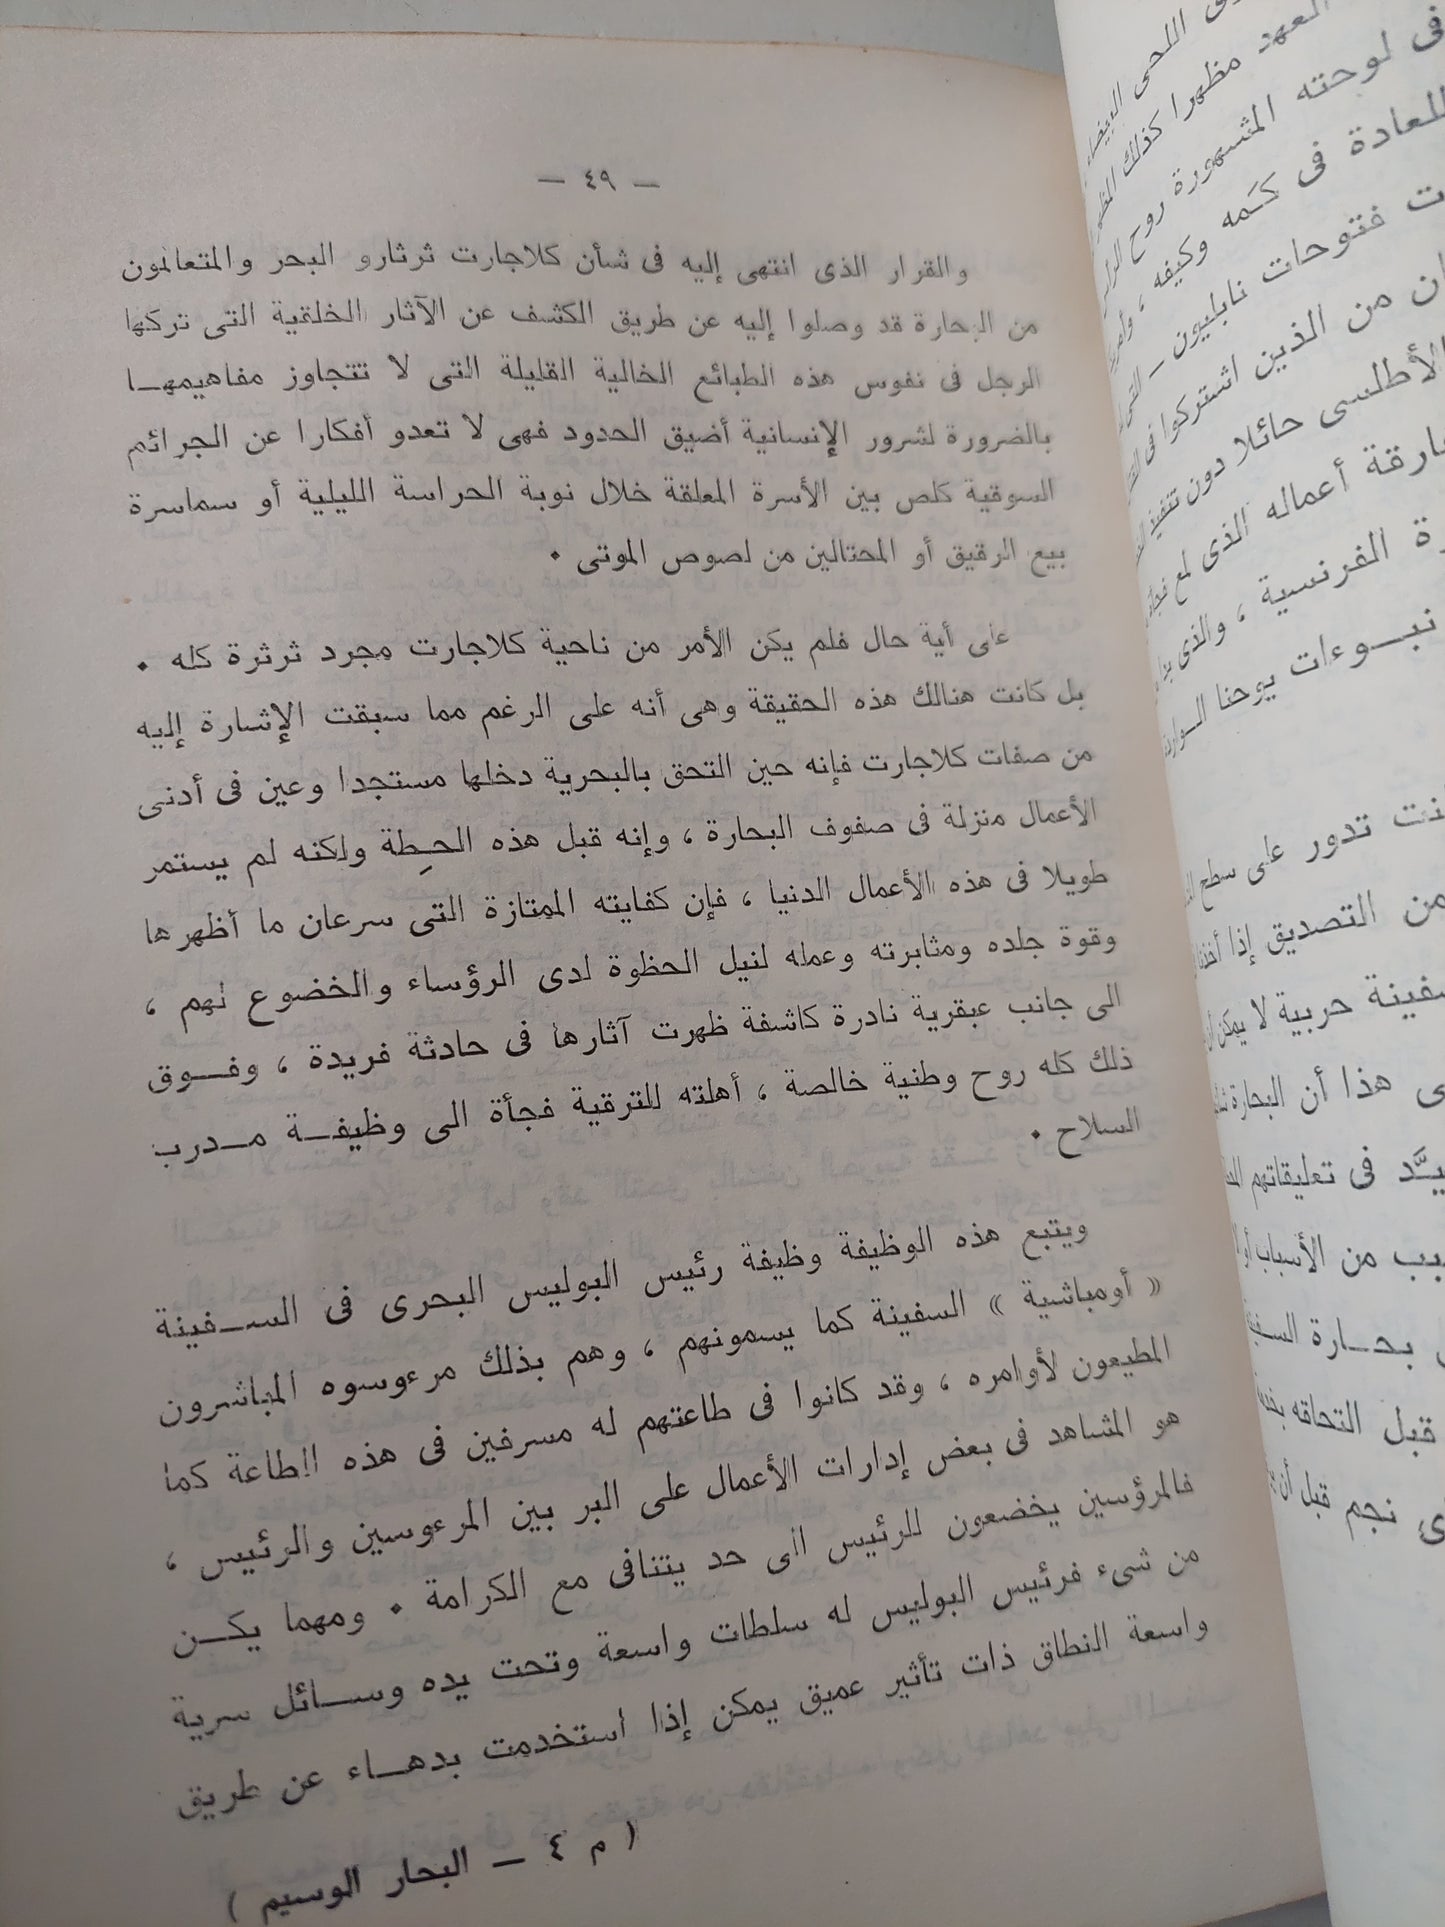 — ٤٩ —
والقرار الذى انتهى إليه فى شأن كلاجارت ثرثارو البحر والمتعالمون
من البحارة قد وصلوا إليه عن طريق الكشف عن الآثار الخلقية التى تركها
الرجل فى نفوس هذه الطبائع الخالية القليلة التى لا تتجاوز مفاهيمهـا
بالضرورة لشرور الإنسانية أضيق الحدود فهى لا تعدو أفكارا عن الجرائم
السوقية كلص بين الأسرة المعلقة خلال نوبة الحراسة الليلية أو سماسرة
بيع الرقيق أو المحتالين من لصوص الموتى ٠
على أية حال فلم يكن الأمر من ناحية كلاجارت مجرد ثرثرة كله ٠
بل كانت هنالك هذه الحقيقة وهى أنه على الرغم مما سبقت الإشارة إليه
من صفات كلاجارت فإنه حين التحق بالبحرية دخلها مستجدا وعين فى أدنى
الأعمال منزلة فى صفوف البحارة ، وإنه قبل هذه الحـِطة ولكنه لم يستمر
طويلا فى هذه الأعمال الدنيا ، فإن كفايته الممتازة التى سرعان ما أظهرها
وقوة جلده ومثابرته وعمله لنيل الحظوة لدى الرؤساء والخضوع لهم ،
الى جانب عبقرية نادرة كاشفة ظهرت آثارها فى حادثة فريدة ، وفـوق
ذلك كله روح وطنية خالصة ، أهلته للترقية فجأة الى وظيفـة مـدرب
السلاح ٠
ويتبع هذه الوظيفة وظيفة رئيس البوليس البحرى فى السـفينة
« أومباشية » السفينة كما يسمونهم ، وهم بذلك مرءوسوه المباشرون
المطيعون لأوامره ، وقد كانوا فى طاعتهم له مسرفين فى هذه الطاعة كما
هو المشاهد فى بعض إدارات الأعمال على البر بين المرءوسين والرئيس ،
فالمرؤسين يخضعون للرئيس الى حد يتنافى مع الكرامة ٠ ومهما يكـن
من شىء فرئيس البوليس له سلطات واسعة وتحت يده وسـائل سرية
واسعة النطاق ذات تأثير عميق يمكن إذا استخدمت بدهـاء عن طريق
( م ٤ — البحار الوسيم )
اللحى البيضاء
العهد مظهرا كذلك
فى لوحته المشهورة روح
للعادة فى كـَمه وكيفه ،
فتوحات نابليون —
من الذين اشتركوا فى
الأطلسى حائلا دون تنفيذ
أعماله الذى لمع
الفرنسية ، والذى
نبـوءات يوحنا
تدور على سطح
من التصديق إذا
سفينة حربية لا يمكن
هذا أن البحارة
فى تعليقاتهم
من الأسباب
بحـارة
قبل التحاقه
نجم قبل أن